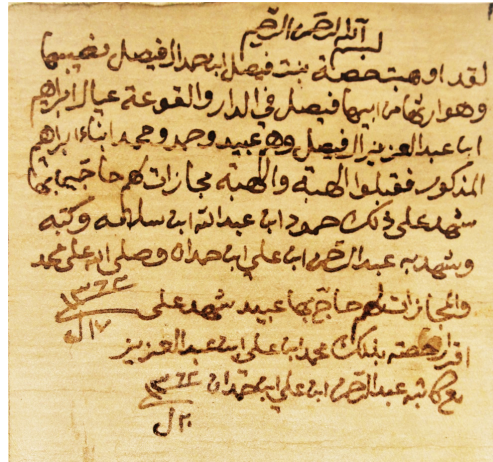 بسم الله الرحمن الرحيم
لقد اوهبت حصة بنت فيصل ابن حمد الفيصل نصيبها
وهوارثها من ابيها فيصل في الدار والقوعة عيال ابراهيم
ابن عبدالعزيز الفيصل وهم عبيد وحمد ومحمد ابناء ابراهم
المذكور فقبلوا الهبة والهبة مجازات لهم حاجتين بها
شهد على ذلك حمود ابن عبدالله ابن سلامه وكتبه
وشهد به عبدالرحمن ابن علي ابن حمدان وصلى الله على محمد
والمجازات لهم حاج بها عبيد شهد على ١٣٦٤
١٧ ل
اقرار حصه بذلك محمد ابن علي ابن عبدالعزيز
مع كاتبه عبدالرحمن ابن علي ابن حمدان ١٣٦٤
٢٠ ل